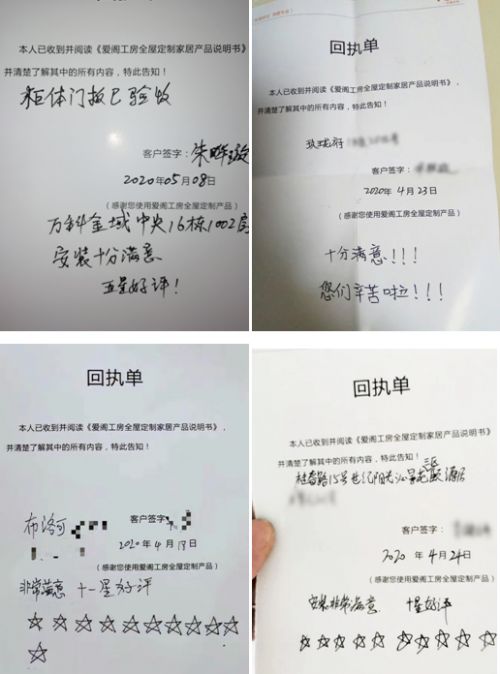 本人已收到并阅读《爱阁工房全屋定制家居产品说明书》
并清楚了解其中的所有内容，特此告知！
柜体门板已验收
客户签字：朱晔璇
2020年05月08日
（感谢您使用爱阁工房全屋定制产品）
万科金域中央16栋1002房
安装十分满意
五星好评！
回执单
本人已收到并阅读《爱阁工房全屋定制家居产品说明书》
并清楚了解其中的所有内容，特此告知！
玖珑府
客户签字：
2020年4月23日
（感谢您使用爱阁工房全屋定制产品）
十分满意！！！
您们辛苦啦！！！
回执单
本人已收到并阅读《爱阁工房全屋定制家居产品说明书》
并清楚了解其中的所有内容，特此告知！
布洛可
客户签字
2020年4月13日
（感谢您使用爱阁工房全屋定制产品）
非常满意 十一星好评
回执单
本人已收到并阅读《爱阁工房全屋定制家居产品说明书》
并清楚了解其中的所有内容，特此告知！
路15号世纪阳光 酒店
客户签字：
2020年4月24日
（感谢您使用爱阁工房全屋定制产品）
安装非常满意 十星好评